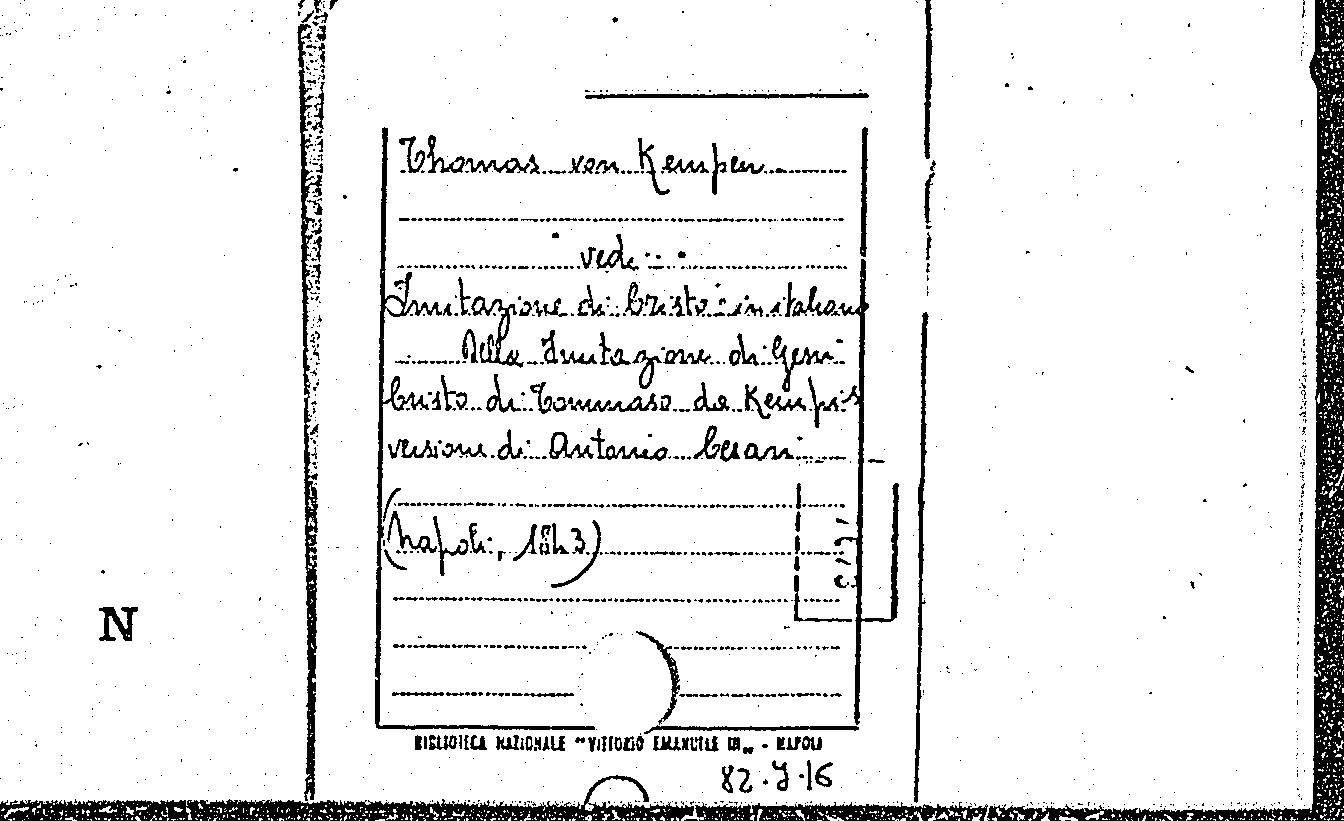 Thomas von Kempen
vedi:
Imitazione di Cristo: in italiano
Della Imitazione di Gesù
Cristo di Tommaso da Kempis
versione di Antonio Cesari
(Napoli, 1843)
N
BIBLIOTECA NAZIONALE "VITTORIO EMANUELE III„ - NAPOLI
82.J.16